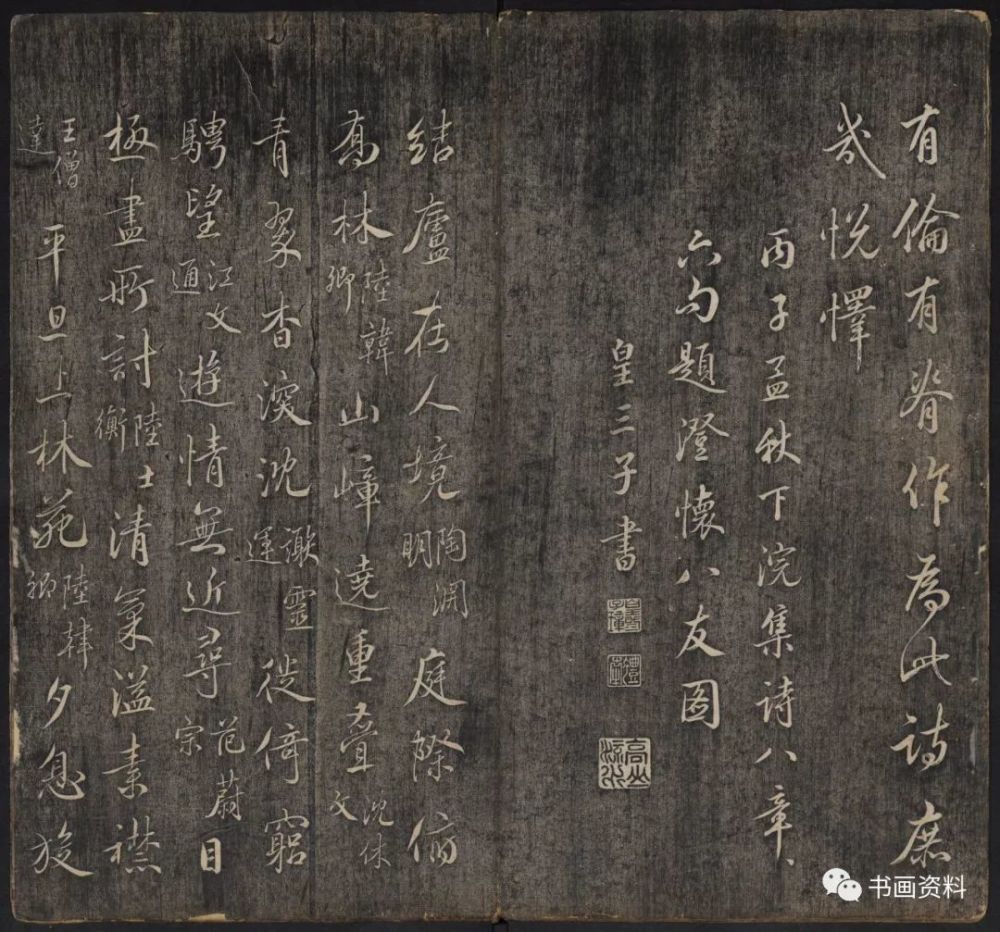 有倫有脊作為此詩庶
幾悅懌
丙子孟秋下浣集詩八章、
六句題澄懷八友圖
皇三子書
高山流水
結廬在人境陶淵明庭際俯
喬林陸韓卿山嶂遠重疊沈休文
青翠杳深沈謝靈運徙倚窮
騁望江文通遊情無近尋范蔚宗目
極盡所討陸士衡清氣溢素襟
王僧達平旦上林苑陸韓卿夕息旋
书画资料